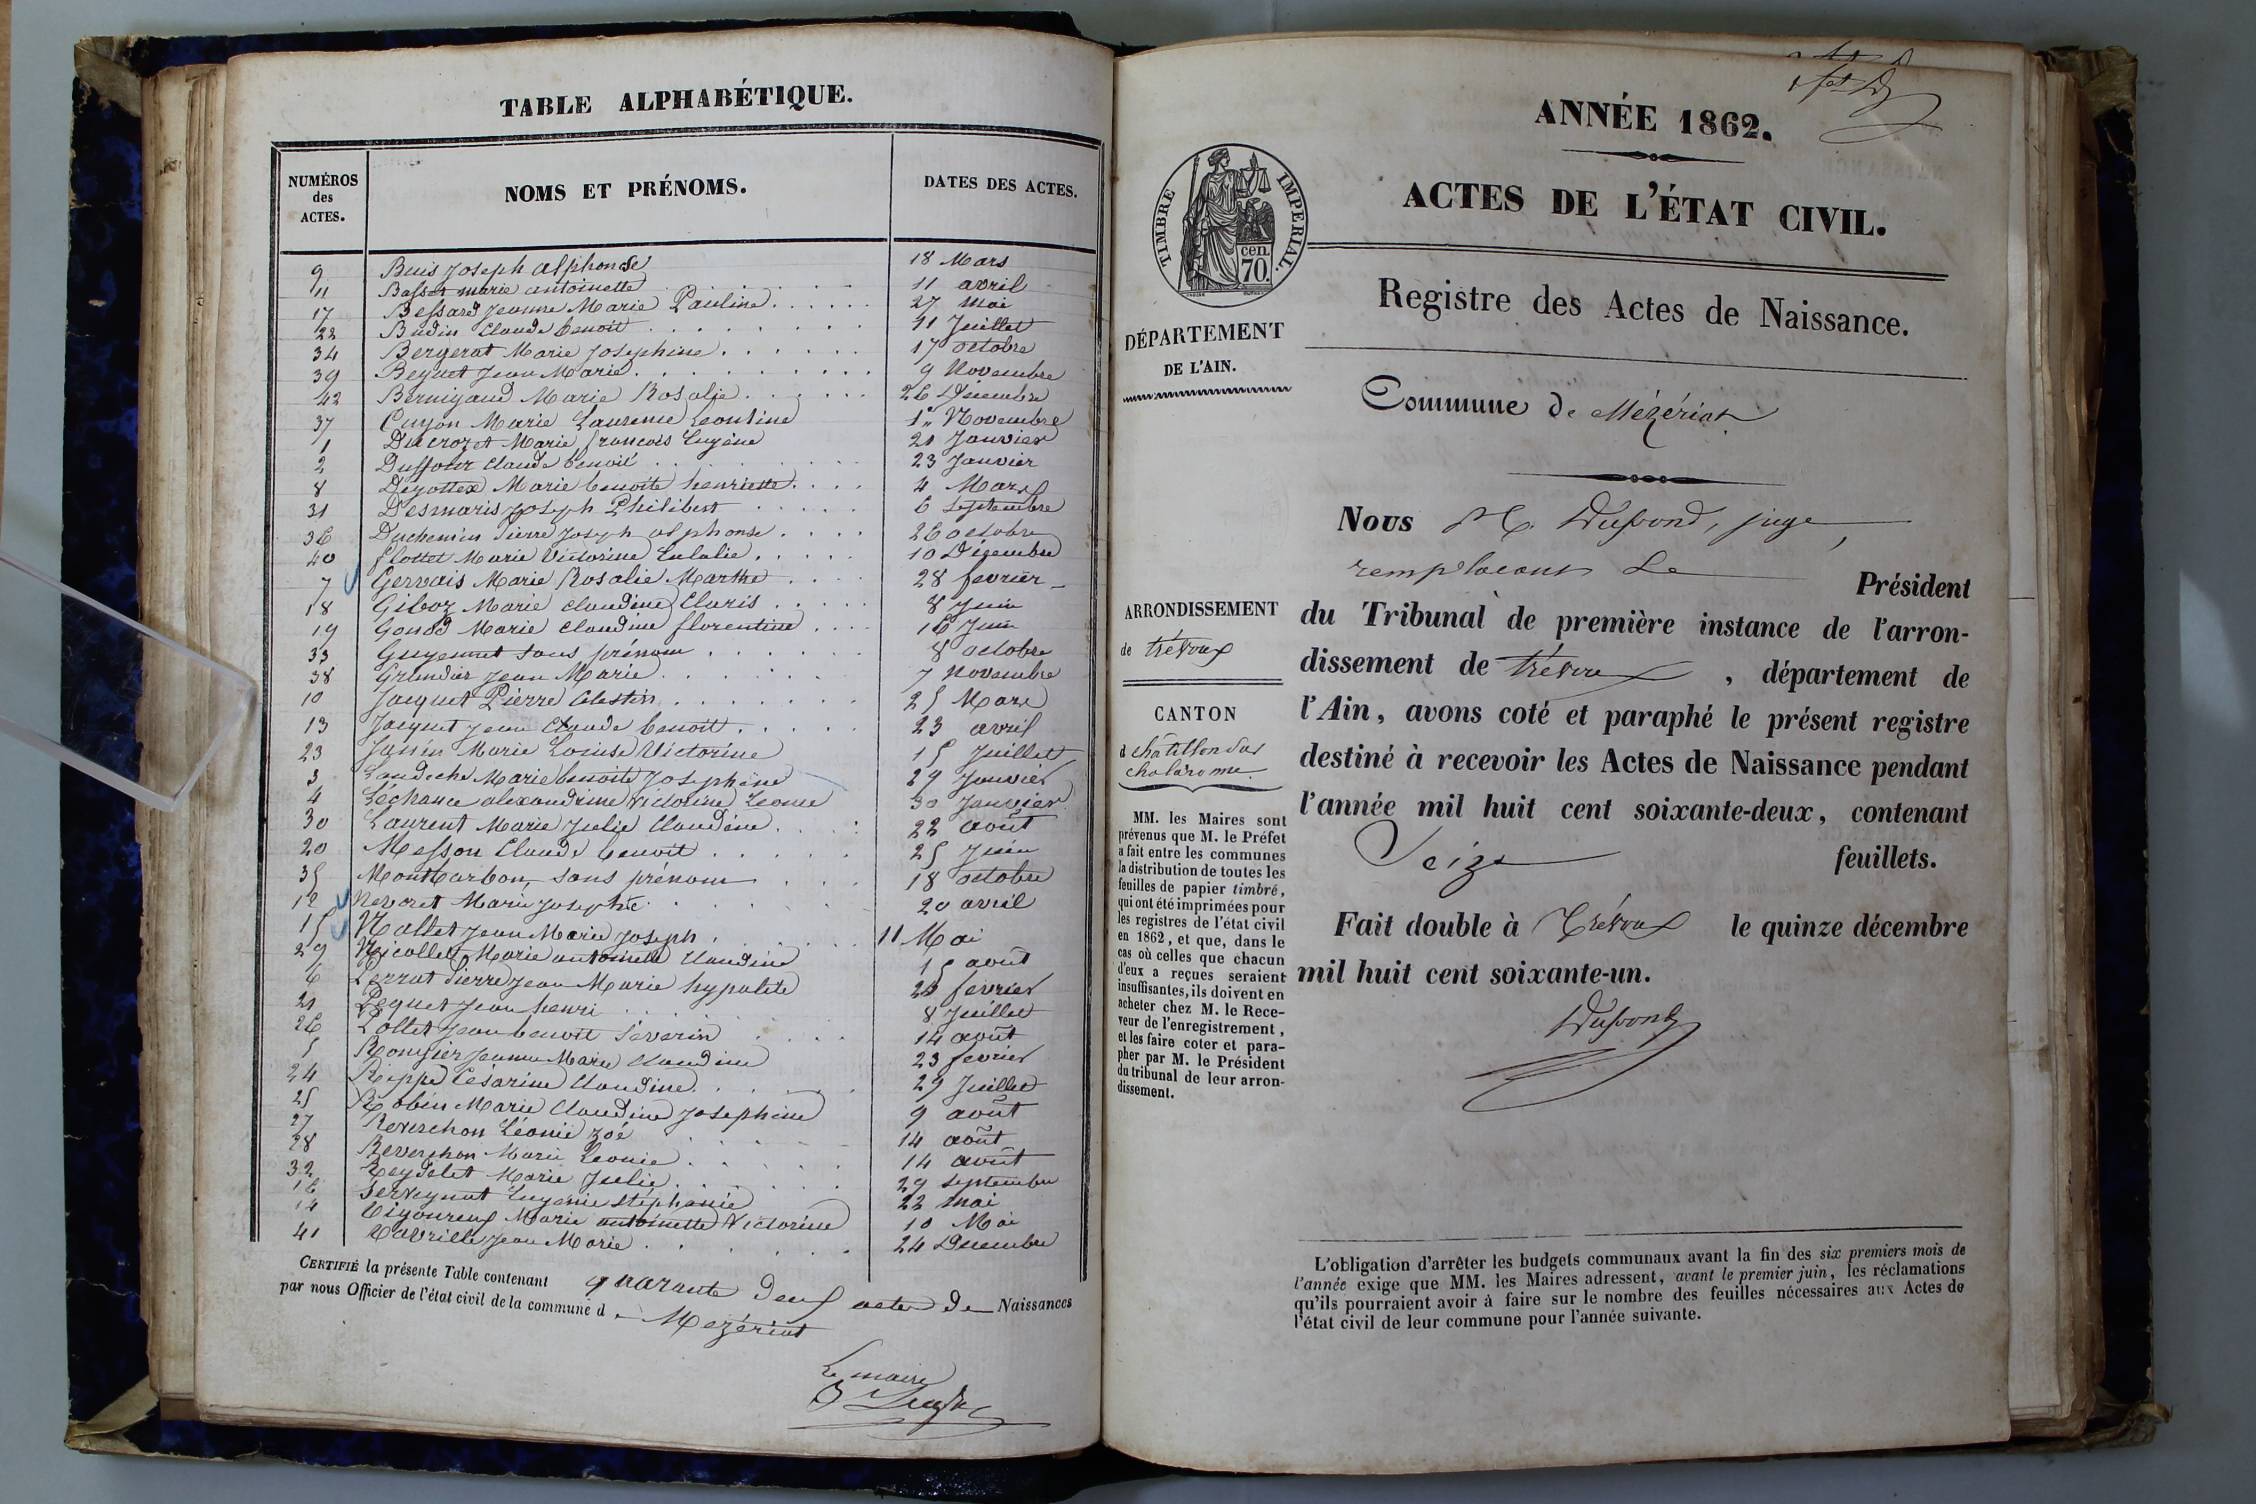 TABLE ALPHABÉTIQUE.
NUMÉROS des ACTES.
NOMS ET PRÉNOMS.
DATES DES ACTES.
9 Buis Joseph alphonse 18 Mars
11 Basset marie antoinette 11 avril
17 Bessard Jeanne Marie Pauline 27 mai
22 Budin Claude benoit 11 Juillet
34 Bergerat Marie Josephine 17 octobre
39 Beguet Jean Marie 9 Novembre
42 Bernigaud Marie Rosalie 26 Décembre
37 Cuyon Marie Laurence Leontine 1er Novembre
1 Ducrozet Marie françois Eugène 21 Janvier
2 Duffour Claude benoit 23 Janvier
8 Degottex Marie benoite henriette 4 Mars
31 Desmaris Joseph Philibert 6 Septembre
36 Duchemin Pierre Joseph alphonse 26 octobre
40 flottet Marie Victorine Eulalie 10 Décembre
7 Gervais Marie Rosalie Marthe 28 fevrier
18 Giboz Marie Claudine Claris 8 Juin
19 Gonod Marie Claudine florentine 16 Juin
33 Guyennet sans prénom 8 octobre
38 Grandier Jean Marie 7 novembre
10 Jacquet Pierre Celestin 25 Mars
13 Jacquet Jean Claude benoit 23 avril
23 Janin Marie Louise Victorine 15 Juillet
3 Landeche Marie benoite Josephine 29 Janvier
4 Léchance alexandrine Victorine Leonie 30 Janvier
30 Laurent Marie Julie Claudine 22 août
20 Messon Claude benoit 25 Juin
35 Montbarbon, sans prénom 18 octobre
12 Nevoret Marie Josephte 20 avril
15 Nallet Jean Marie Joseph 11 Mai
29 Nicollet Marie antoinette Claudine 15 août
6 Perrat Pierre Jean Marie hypolite 25 fevrier
21 Peguet Jean henri 8 Juillet
26 Pollet Jean benoit Séverin 14 août
5 Rongier Jeanne Marie Claudine 23 fevrier
24 Rippe Césarine Claudine 29 Juillet
25 Robin Marie Claudine Josephine 9 août
27 Reverchon Léonie Zoé 14 août
28 Reverchon Marie Leonie 14 août
32 Reydelet Marie Julie 29 Septembre
16 Serveynat Eugenie Stéphanie 22 mai
14 Vigoureux Marie antoinette Victorine 10 Mai
41 Vavrille Jean Marie 24 Décembre
CERTIFIÉ la présente Table contenant quarante deux actes de Naissances
par nous Officier de l'état civil de la commune de Mézériat
Le maire
ANNÉE 1862.
ACTES DE L'ÉTAT CIVIL.
TIMBRE IMPERIAL.
cen.
70.
Registre des Actes de Naissance.
DÉPARTEMENT
DE L'AIN.
Commune de Mézériat
Nous M. Dufsond, juge,
remplaçant Le Président
du Tribunal de première instance de l'arron-
dissement de trévoux, département de
l'Ain, avons coté et paraphé le présent registre
destiné à recevoir les Actes de Naissance pendant
l'année mil huit cent soixante-deux, contenant
Seize feuillets.
Fait double à Trévoux le quinze décembre
mil huit cent soixante-un.
ARRONDISSEMENT
de trévoux
CANTON
d châtillon sur
chalaronne
MM. les Maires sont
prévenus que M. le Préfet
a fait entre les communes
la distribution de toutes les
feuilles de papier timbré,
qui ont été imprimées pour
les registres de l'état civil
en 1862, et que, dans le
cas où celles que chacun
d'eux a reçues seraient
insuffisantes, ils doivent en
acheter chez M. le Rece-
veur de l'enregistrement,
et les faire coter et para-
pher par M. le Président
du tribunal de leur arron-
dissement.
L'obligation d'arrêter les budgets communaux avant la fin des six premiers mois de
l'année exige que MM. les Maires adressent, avant le premier juin, les réclamations
qu'ils pourraient avoir à faire sur le nombre des feuilles nécessaires aux Actes de
l'état civil de leur commune pour l'année suivante.